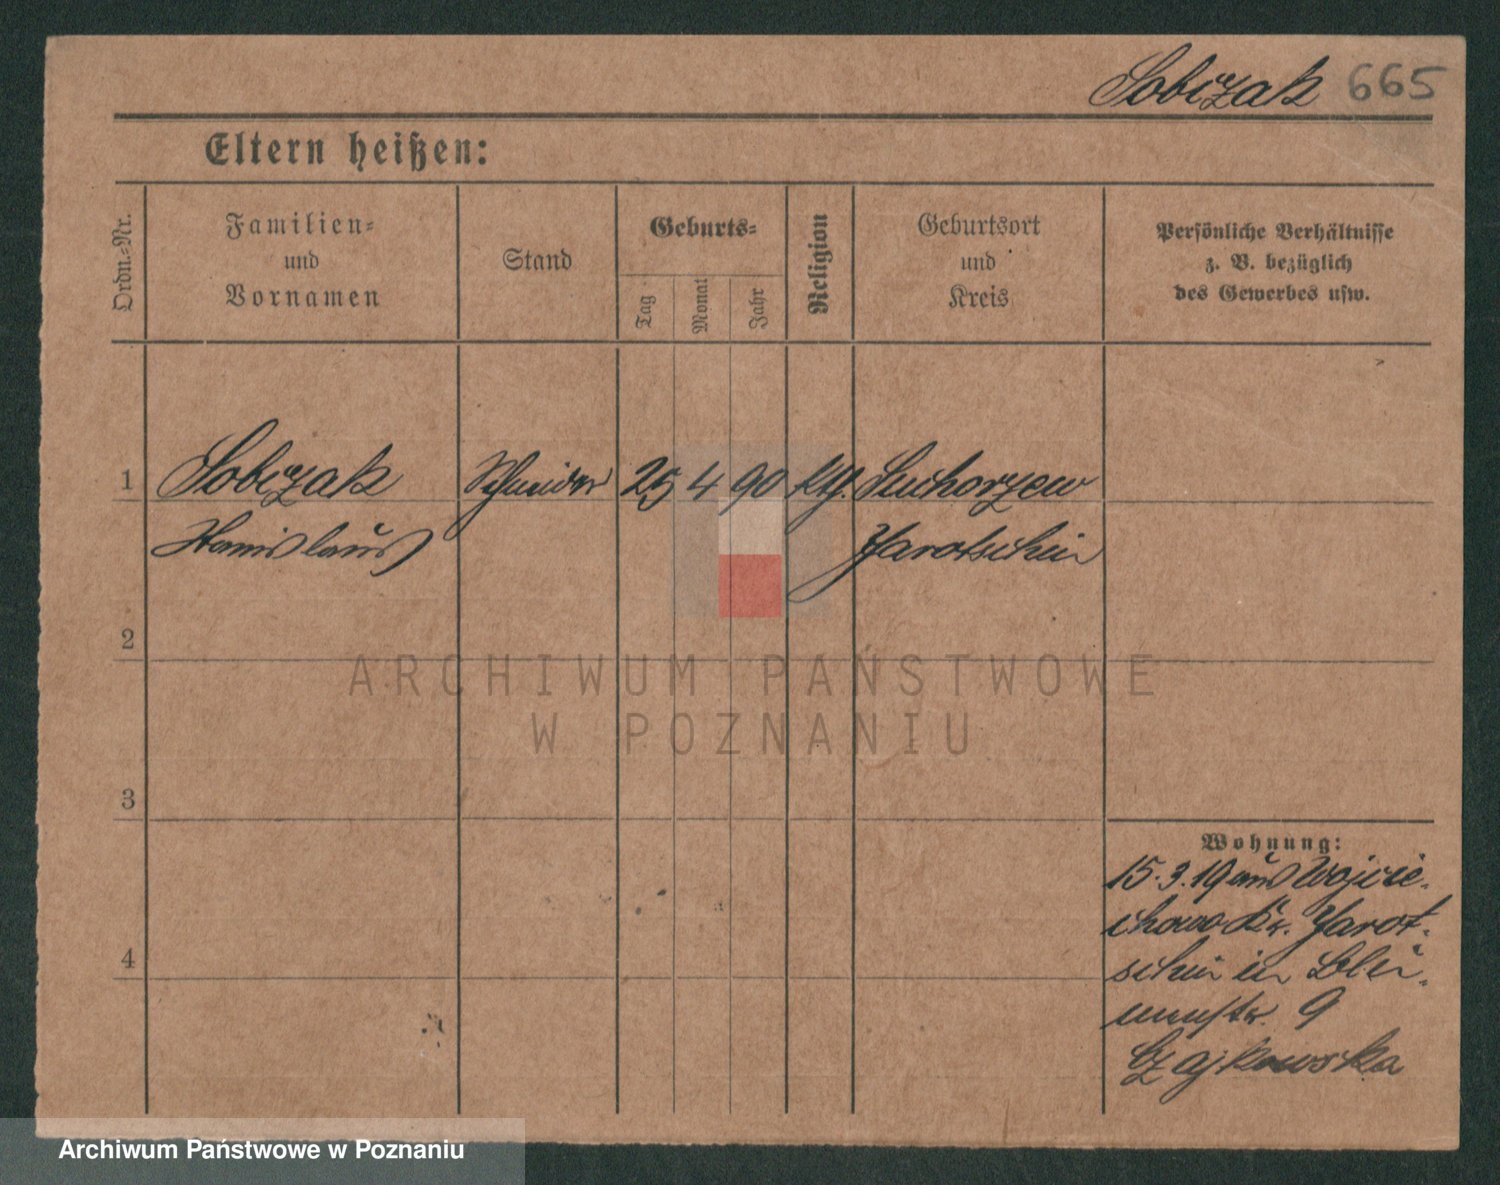 Sobczak 665
Eltern heißen:
Ordn.-Nr.
Familien-
und
Vornamen
Stand
Geburts-
Tag
Monat
Jahr
Religion
Geburtsort
und
Kreis
Persönliche Verhältnisse
z. B. bezüglich
des Gewerbes usw.
1 Sobczak Schneider 25 4 90 kth. Suchorzew
Stanislaus Jarotschin
2
ARCHIWUM PAŃSTWOWE
W POZNANIU
3
Wohnung:
15.3.19 aus Wojcie-
chowo Kr. Jarot-
schin in Blu-
menstr. 9
Czajkowska
4
Archiwum Państwowe w Poznaniu